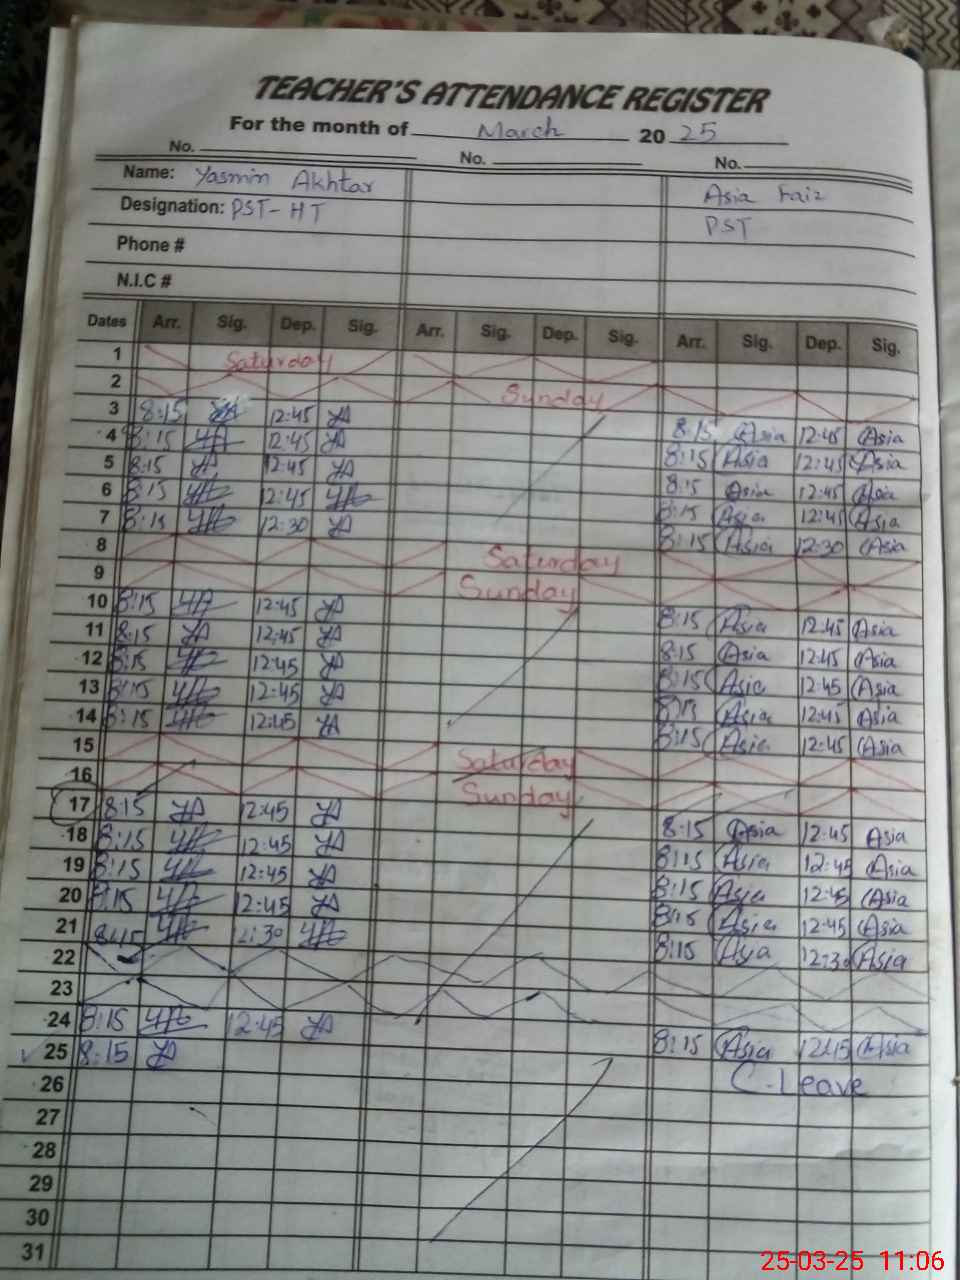 TEACHER'S ATTENDANCE REGISTER
For the month of March 2025
No. No. No.
Name: Yasmin Akhtar Asia Faiz
Designation: PST-HT PST
Phone #
N.I.C #
Dates Arr. Sig. Dep. Sig. Arr. Sig. Dep. Sig. Arr. Sig. Dep. Sig.
1 Saturday
2 Sunday
3 8:15 YA 12:45 YA 8:15 Asia 12:45 Asia
4 8:15 YA 12:45 YA 8:15 Asia 12:45 Asia
5 8:15 YA 12:45 YA 8:15 Asia 12:45 Asia
6 8:15 YA 12:45 YA 8:15 Asia 12:45 Asia
7 8:15 YA 12:30 YA 8:15 Asia 12:30 Asia
8 Saturday
9 Sunday
10 8:15 YA 12:45 YA 8:15 Asia 12:45 Asia
11 8:15 YA 12:45 YA 8:15 Asia 12:45 Asia
12 8:15 YA 12:45 YA 8:15 Asia 12:45 Asia
13 8:15 YA 12:45 YA 8:15 Asia 12:45 Asia
14 8:15 YA 12:45 YA 8:15 Asia 12:45 Asia
15 Saturday
16 Sunday
17 8:15 YA 12:45 YA 8:15 Asia 12:45 Asia
18 8:15 YA 12:45 YA 8:15 Asia 12:45 Asia
19 8:15 YA 12:45 YA 8:15 Asia 12:45 Asia
20 8:15 YA 12:45 YA 8:15 Asia 12:45 Asia
21 8:15 YA 12:30 YA 8:15 Asia 12:30 Asia
22
23
24 8:15 YA 12:45 YA 8:15 Asia 12:45 Asia
25 8:15 YA C-Leave
26
27
28
29
30
31
25-03-25 11:06